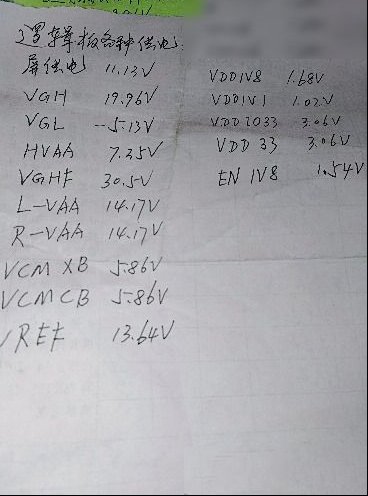 逻辑板各种供电:
屏供电 11.13V
VGH 19.96V
VGL -5.13V
HVAA 7.25V
VGHF 30.5V
L-VAA 14.17V
R-VAA 14.17V
VCM XB 5.86V
VCMCB 5.86V
VREF 13.64V
VDD1V8 1.68V
VDD1V1 1.02V
VDD2033 3.06V
VDD 33 3.06V
EN 1V8 1.54V